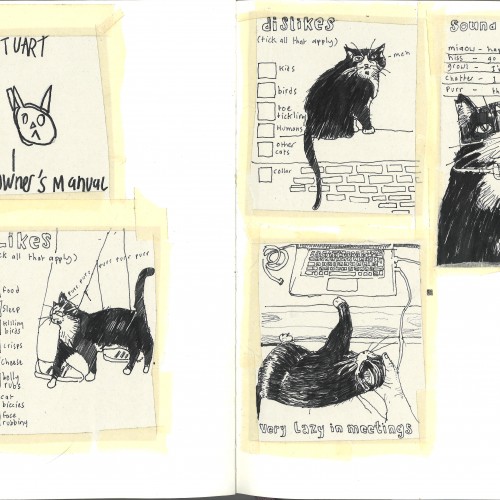 TUART
OWNER'S MANUAL
LIKES
(tick all that apply)
food
sleep
killing
birds
crisps
cheese
belly
rubs
cat
biccies
face
rubbing
purr purr purr purr purr purr
dislikes
(tick all that apply)
kids
birds
toe
tickling
Humans
other
cats
collar
meh
Sound
miaow - ha
hiss - go
growl - I'
chatter - I
purr - th
very Lazy in meetings